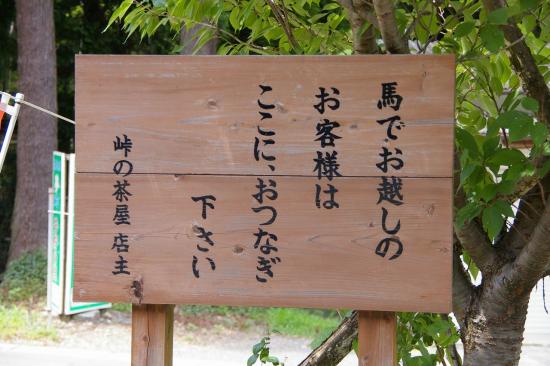 馬でお越しの
お客様は
ここに、おつなぎ
下さい
峠の茶屋 店主